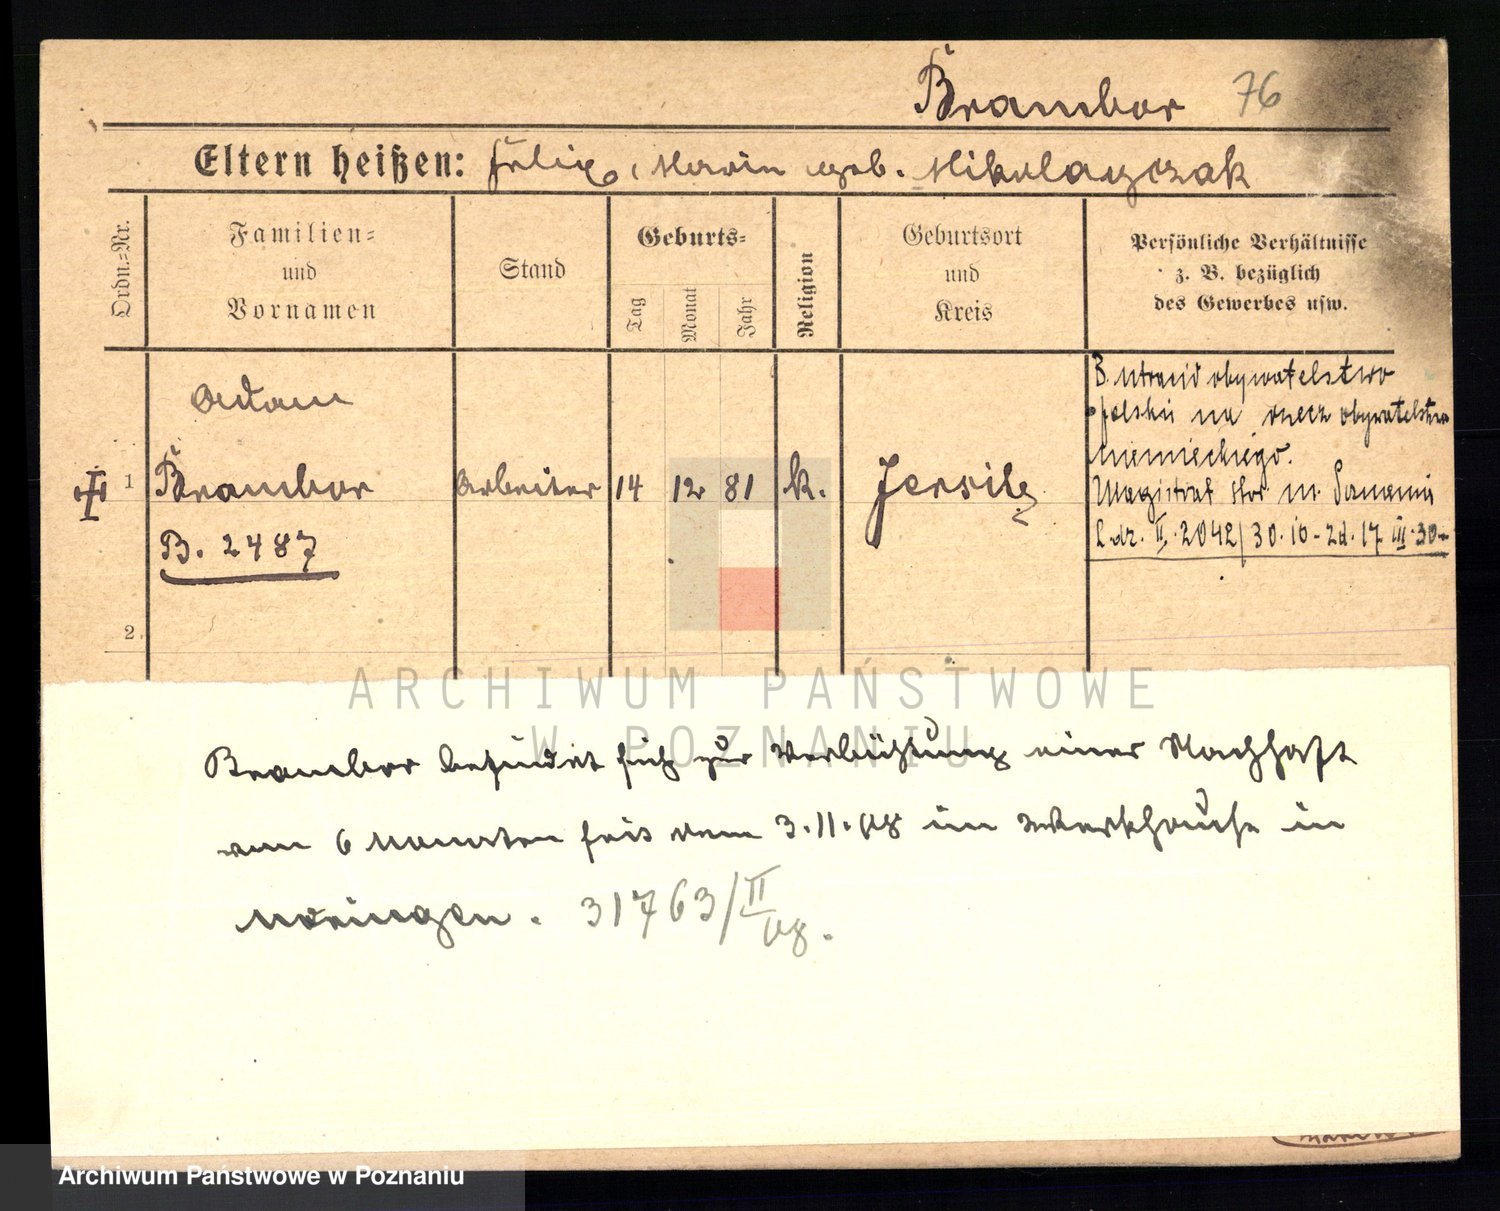 Brambor 76
Eltern heißen: Felix, Marie geb. Mikolayczak
Ordn.=Nr.
Familien=
und
Vornamen
Stand
Geburts=
Tag
Monat
Jahr
Religion
Geburtsort
und
Kreis
Persönliche Verhältnisse
z. B. bezüglich
des Gewerbes usw.
Adam
1 Brambor Arbeiter 14 12 81 k. Jersitz
B. 2487
B. utracił obywatelstwo
polskie na rzecz obywatelstwa
niemieckiego.
Magistrat stoł. m. Poznania
L. dz. II. 2042/30. 10 - zd. 17 III. 30 -
2
ARCHIWUM PAŃSTWOWE
W POZNANIU
Brambor befindet sich zur Verbüßung einer Nachhaft
von 6 Monaten seit dem 3.11.08 im Werkhause in
Moringen. 31763/II
08.
Archiwum Państwowe w Poznaniu